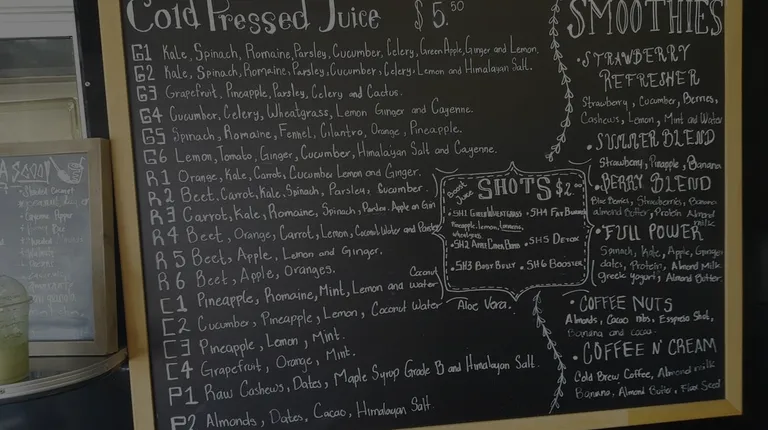 Cold Pressed Juice $5.50
G1 Kale, Spinach, Romaine, Parsley, Cucumber, Celery, Green Apple, Ginger and Lemon.
G2 Kale, Spinach, Romaine, Parsley, Cucumber, Celery, Lemon and Himalayan Salt.
G3 Grapefruit, Pineapple, Parsley, Celery and Cactus.
G4 Cucumber, Celery, Wheatgrass, Lemon Ginger and Cayenne.
G5 Spinach, Romaine, Fennel, Cilantro, Orange, Pineapple.
G6 Lemon, Tomato, Ginger, Cucumber, Himalayan Salt and Cayenne.
R1 Orange, Kale, Carrot, Cucumber Lemon and Ginger.
R2 Beet, Carrot, Kale, Spinach, Parsley, Cucumber.
R3 Carrot, Kale, Romaine, Spinach, Parsley, Apple
R4 Beet, Orange, Carrot, Lemon, Coconut Water and Parsley
R5 Beet, Apple, Lemon and Ginger.
R6 Beet, Apple, Oranges.
C1 Pineapple, Romaine, Mint, Lemon and Coconut water
C2 Cucumber, Pineapple, Lemon, Coconut Water, Aloe Vera.
C3 Pineapple, Lemon, Mint.
C4 Grapefruit, Orange, Mint.
P1 Raw Cashews, Dates, Maple Syrup Grade B and Himalayan Salt.
P2 Almonds, Dates, Cacao, Himalayan Salt.
Boost Juice SHOTS $2.00
•SH1 Ginger Wheatgrass
Pineapple, Lemon,
wheatgrass
•SH2
•SH3 Body Belly
•SH4 Fat Burner
•SH5 Detox
•SH6 Booster
SMOOTHIES
•STRAWBERRY
REFRESHER
Strawberry, Cucumber, Berries,
Cashews, Lemon, Mint and Water
•SUMMER BLEND
Strawberry, Pineapple, Banana
•BERRY BLEND
Blue Berries, Strawberries, Banana
almond Butter, Protein Almond
milk
•FULL POWER
Spinach, Kale, Apple, Ginger,
dates, Protein, Almond Milk
greek yogurt, Almond Butter.
•COFFEE NUTS
Almonds, Cacao nibs, Espresso Shot,
Banana and cacao.
•COFFEE N' CREAM
Cold Brew Coffee, Almond milk
Banana, Almond Butter, Flax Seed